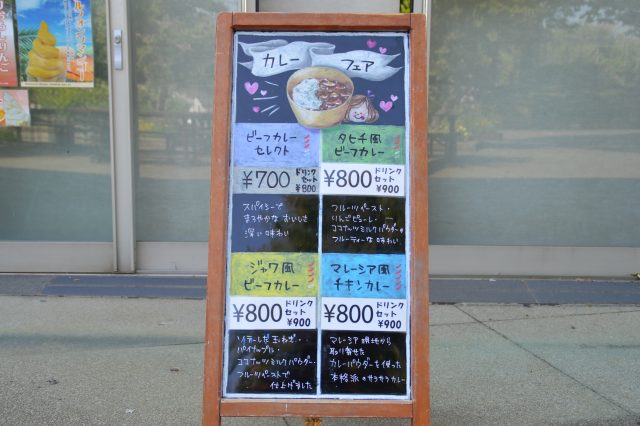 カレー フェア
ビーフカレー
セレクト
¥700
ドリンク
セット
¥800
スパイシーで
まろやかな
深い味わい
タヒチ風
ビーフカレー
¥800
ドリンク
セット
¥900
フルーツペースト・
りんごピューレ・
ココナッツミルクパウダーの
フルーティーな味わい
ジャワ風
ビーフカレー
¥800
ドリンク
セット
¥900
ソテーした玉ねぎ・
パイナップル・
ココナツミルクパウダー・
フルーツペーストで
仕上げました
マレーシア風
チキンカレー
¥800
ドリンク
セット
¥900
マレーシア現地から
取り寄せた
カレーパウダーを使った
本格派のサラサラカレー